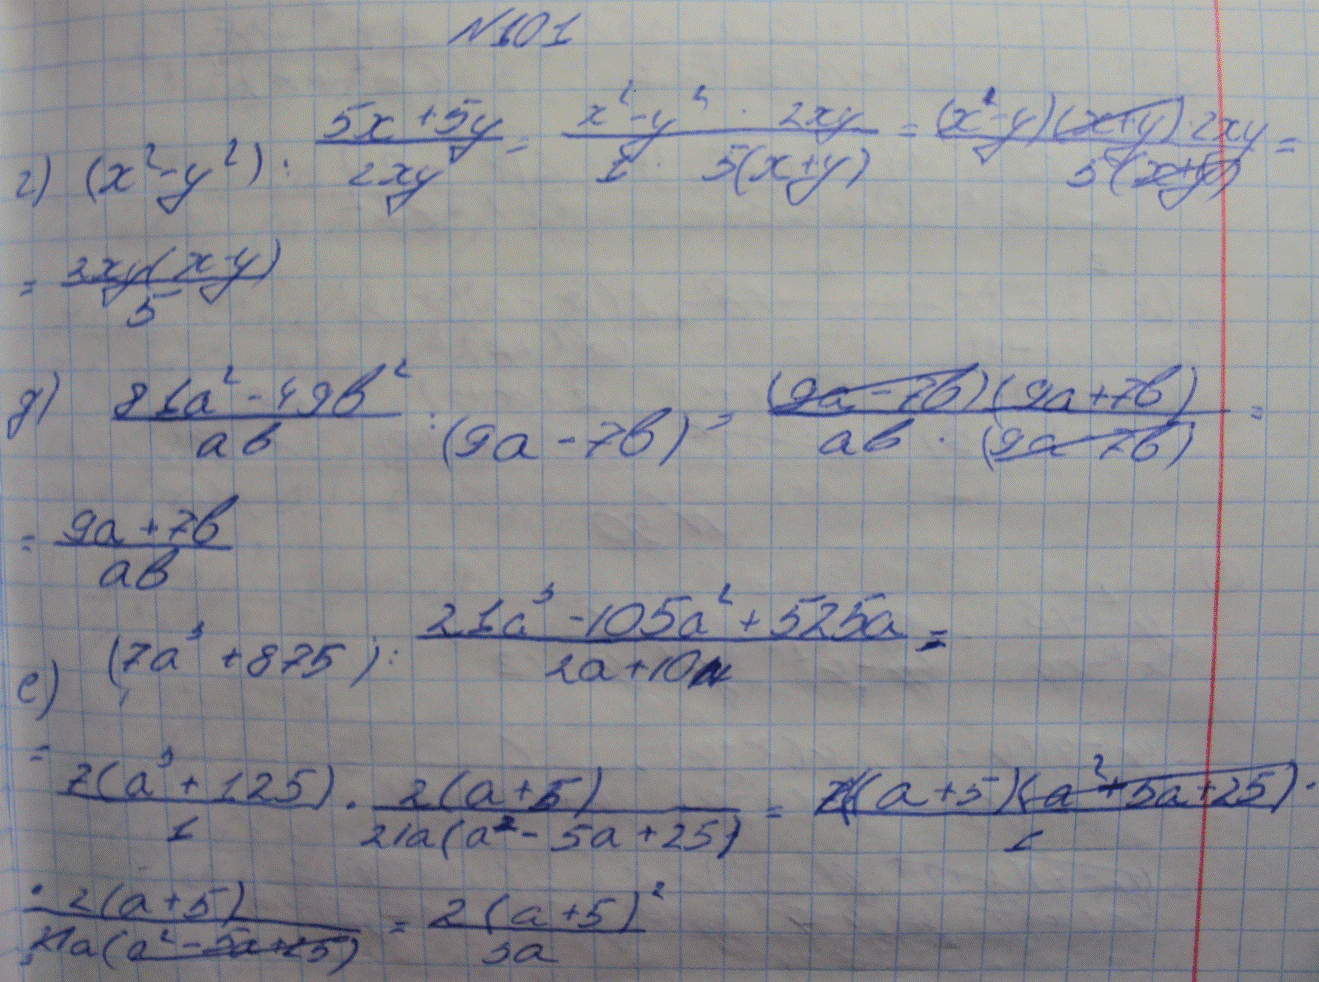 N101
г) (x²-y²) : (5x+5y)/(2xy) = (x²-y² · 2xy)/(1 · 5(x+y)) = ((x²-y)(x+y)·2xy)/(5(x+y)) =
= (2xy(x-y))/5
д) (81a²-49b²)/(ab) : (9a-7b) = ((9a-7b)(9a+7b))/(ab · (9a-7b)) =
= (9a+7b)/(ab)
е) (7a³+875) : (21a³-105a²+525a)/(2a+10) =
= (7(a³+125))/1 · (2(a+5))/(21a(a²-5a+25)) = (7(a+5)(a²+5a+25))/1 ·
· (2(a+5))/(21a(a²-5a+25)) = (2(a+5)²)/(3a)